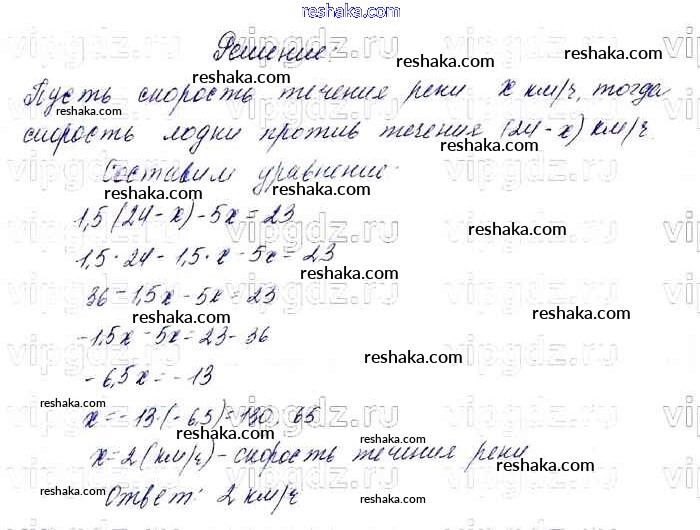 reshaka.com
Решение:
reshaka.com reshaka.com
Пусть скорость течения реки x км/ч, тогда
reshaka.com reshaka.com
скорость лодки против течения (24-x) км/ч
Составим уравнение:
reshaka.com reshaka.com
1,5(24-x)-5x=23
reshaka.com reshaka.com
1,5·24-1,5·x-5x=23
reshaka.com
36-1,5x-5x=23
reshaka.com reshaka.com
-1,5x-5x=23-36
reshaka.com
-6,5x=-13
reshaka.com
x=-13:(-6,5)=130:65
reshaka.com reshaka.com
x=2(км/ч)-скорость течения реки
reshaka.com reshaka.com
Ответ: 2 км/ч
reshaka.com
vipgdz.ru vipgdz.ru vipgdz.ru